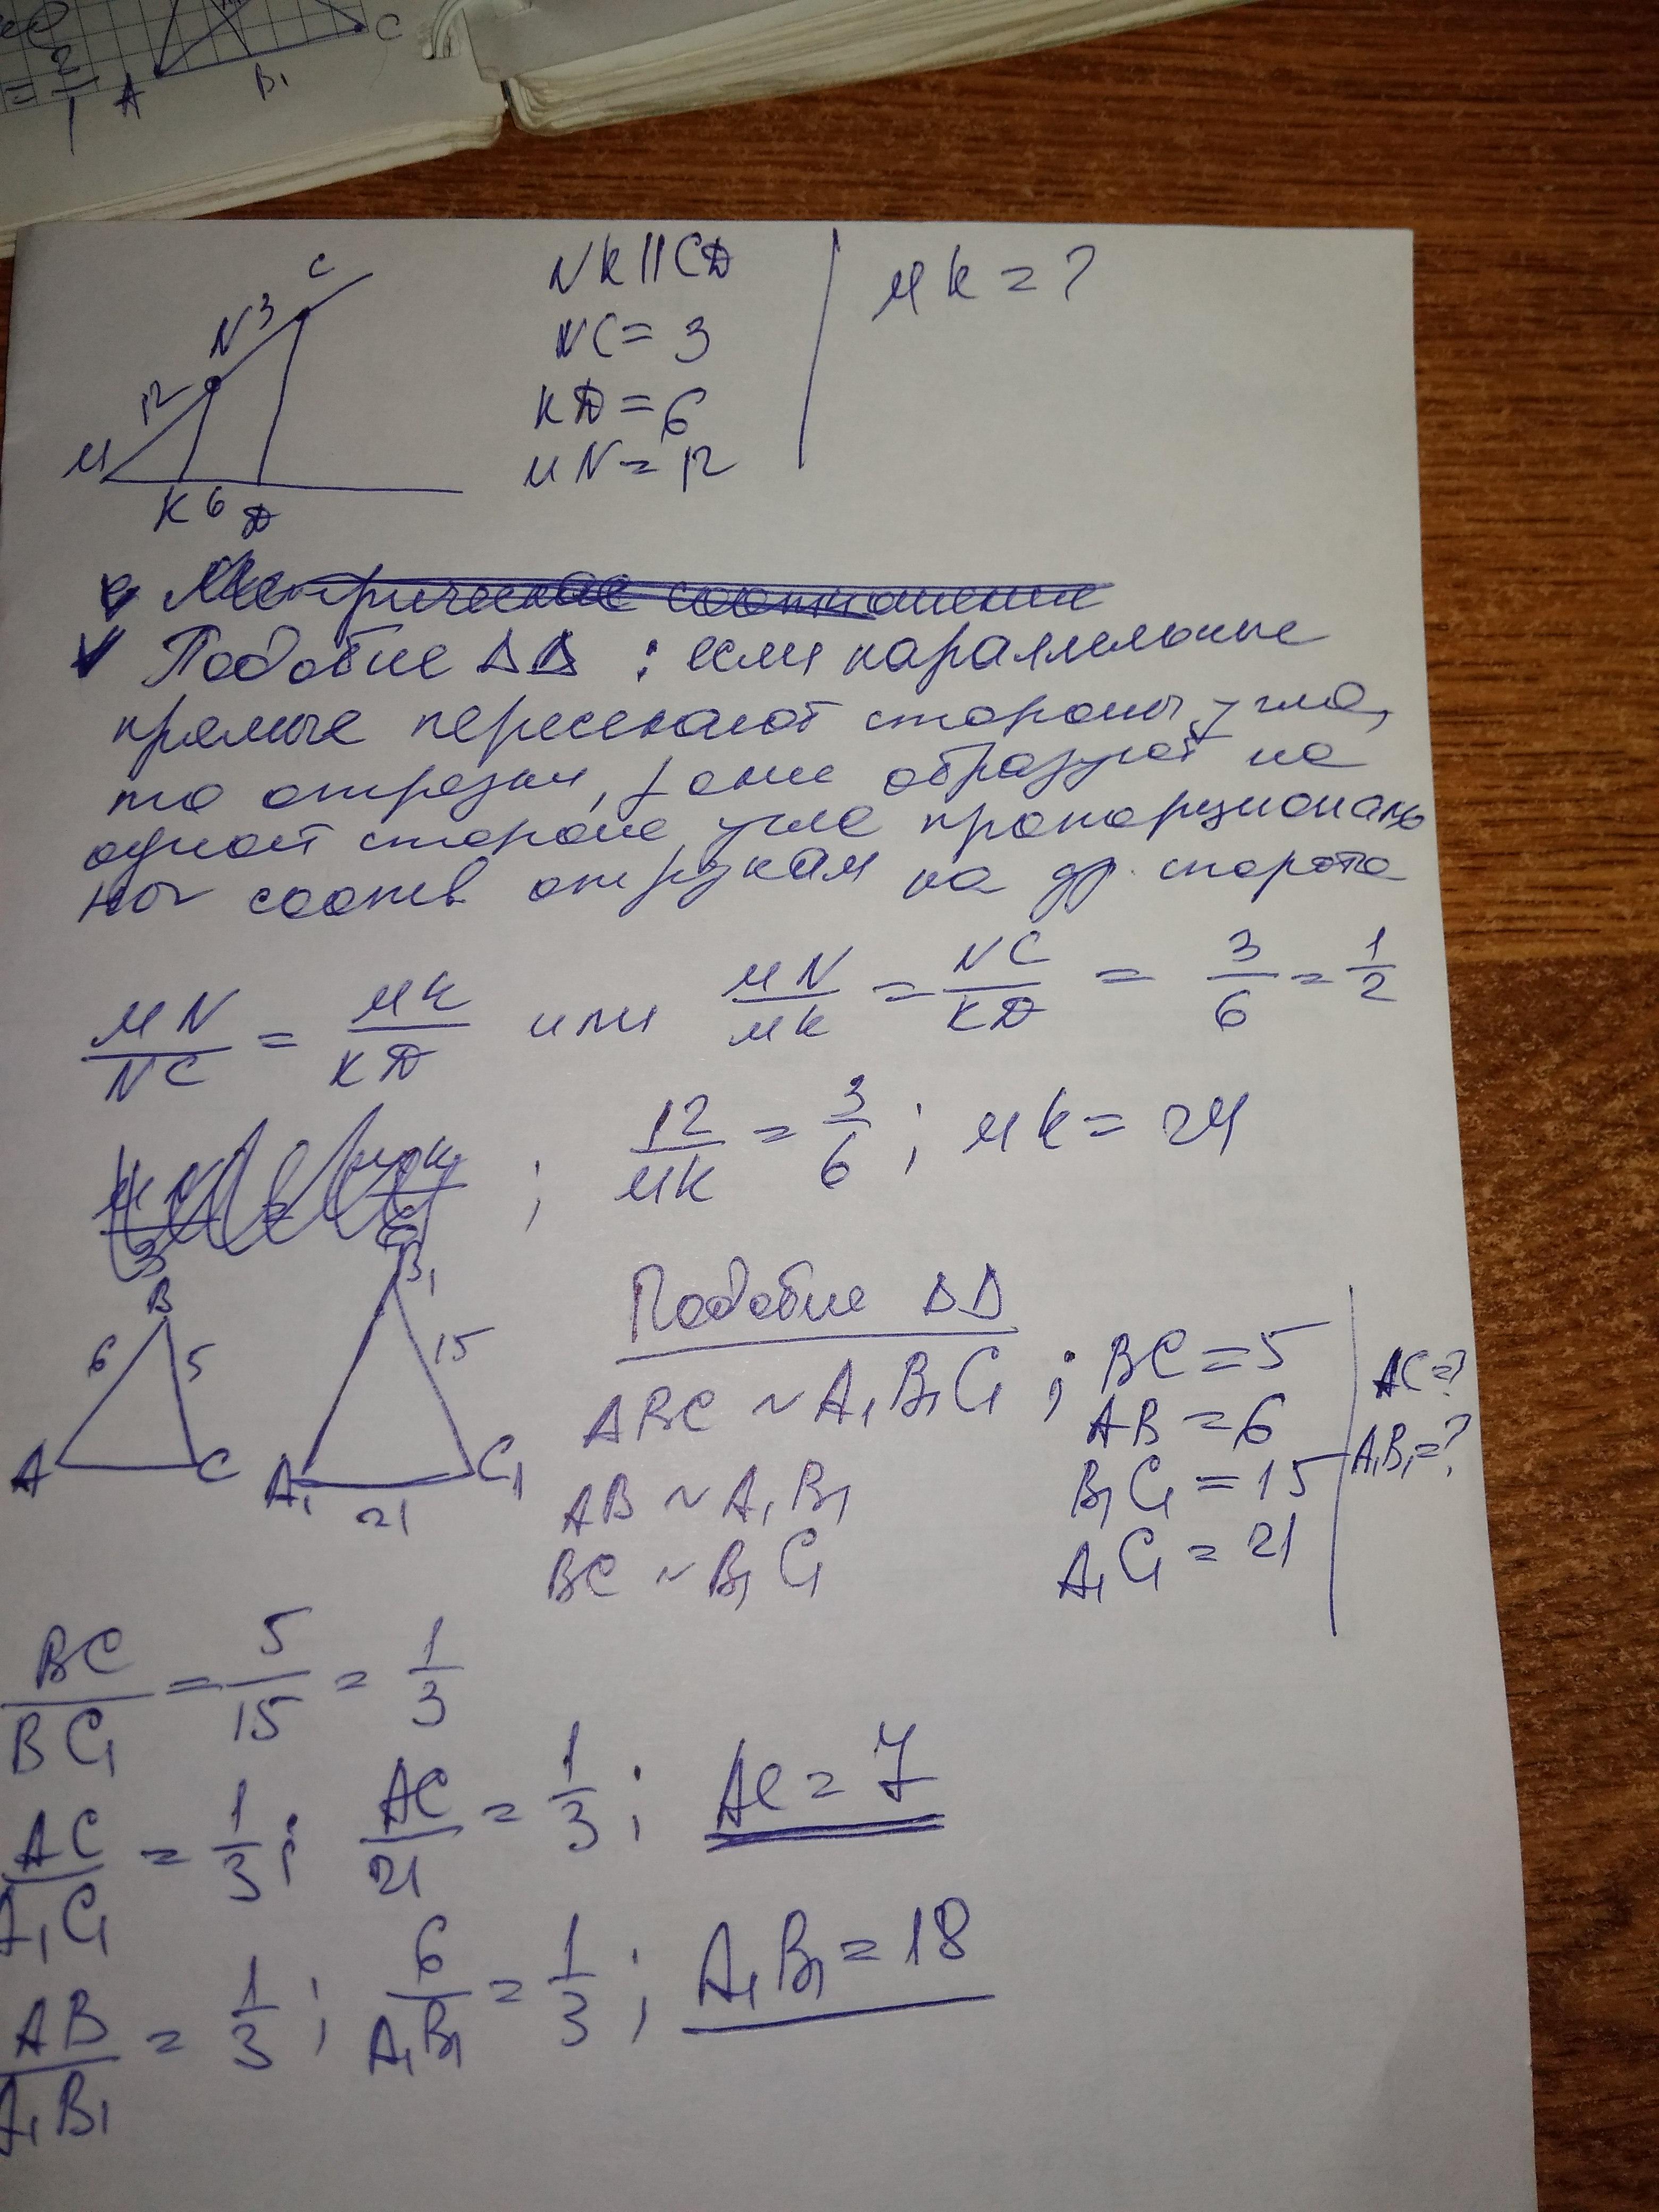 = 2/1
A
B₁
C
C
N 3
12
M
K 6 D
NK || CD
NC = 3
KD = 6
MN = 12
MK = ?
Метрические соотношения
Подобие ΔΔ : если параллельные
прямые пересекают стороны угла,
то отрезки, они образуют на
одной стороне угла пропорциональ
ны соотв отрезкам на др. сторона
MN/NC = MK/KD или MN/MK = NC/KD = 3/6 = 1/2
; 12/MK = 3/6 ; MK = 24
B
6 5
A C
B₁
15
A₁ C₁
21
Подобие ΔΔ
ABC ~ A₁B₁C₁ ; BC = 5
AB = 6
B₁C₁ = 15
A₁C₁ = 21
AC = ?
A₁B₁ = ?
AB ~ A₁B₁
BC ~ B₁C₁
BC/BC₁ = 5/15 = 1/3
AC/A₁C₁ = 1/3 ; AC/21 = 1/3 ; AC = 7
AB/A₁B₁ = 1/3 ; 6/A₁B₁ = 1/3 ; A₁B₁ = 18